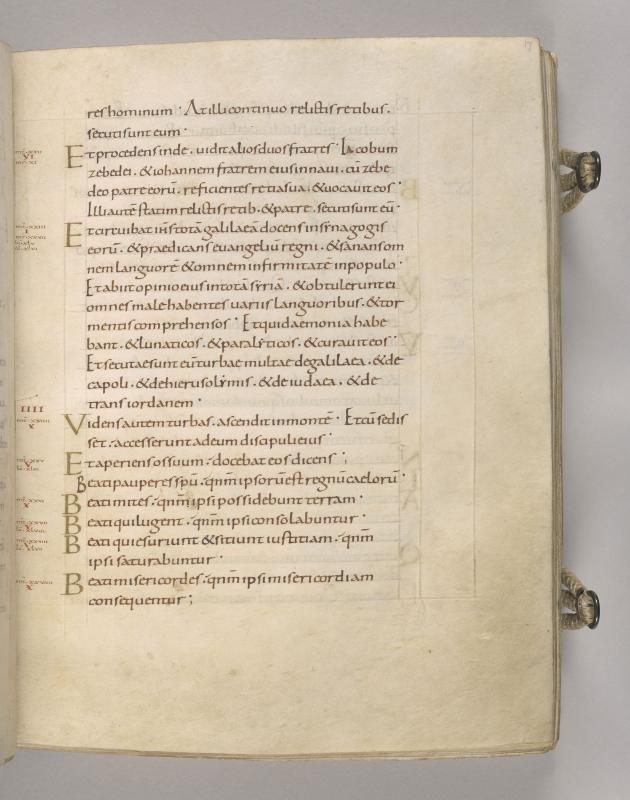 17
reshominum · At illi continuo relictis retibus ·
secuti sunt eum ·
Et procedens inde · vidit alios duos fratres · Iacobum
zebedei · & iohannem fratrem eius in naui · cū zebe
deo patre eorū · reficientes retia sua · & uocauit eos ·
Illi autē statim relictis retib · & patre · secuti sunt eū ·
Et circuibat ih̄s totā galilaeā docens in synagogis
eorū · & praedicans euangeliū regni · & sanans om
nem languorē & omnem infirmitatē in populo ·
Et abiit opinio eius in totā syriā · & obtulerunt ei
omnes male habentes uariis languoribus · & tor
mentis comprehensos · Et qui daemonia habe
bant · & lunaticos · & paralyticos · & curauit eos ·
Et secutae sunt eū turbae multae de galilaea · & de
capoli · & de hierusolymis · & de iudaea · & de
trans iordanem ·
IIII
Videns autem turbas · ascendit in montē · Et cū sedis
set · accesserunt ad eum discipuli eius ·
Et aperiens os suum · docebat eos dicens ;
Beati pauperes spū · qnm̄ ipsorū est regnū caelorū ·
Beati mites · qnm̄ ipsi possidebunt terram ·
Beati qui lugent · qnm̄ ipsi consolabuntur ·
Beati qui esuriunt & sitiunt iustitiam · qnm̄
ipsi saturabuntur ·
Beati misericordes · qnm̄ ipsi misericordiam
consequentur ;